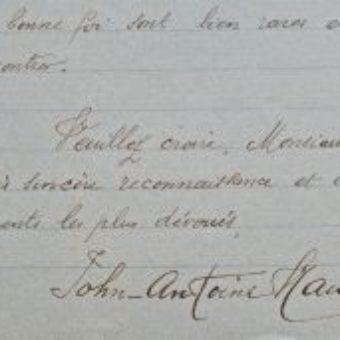 bonne foi sont bien rares
ontrer.
Veuillez croire, Monsieu
sincère reconnaissance et
ents les plus dévoués.
John-Antoine Nau